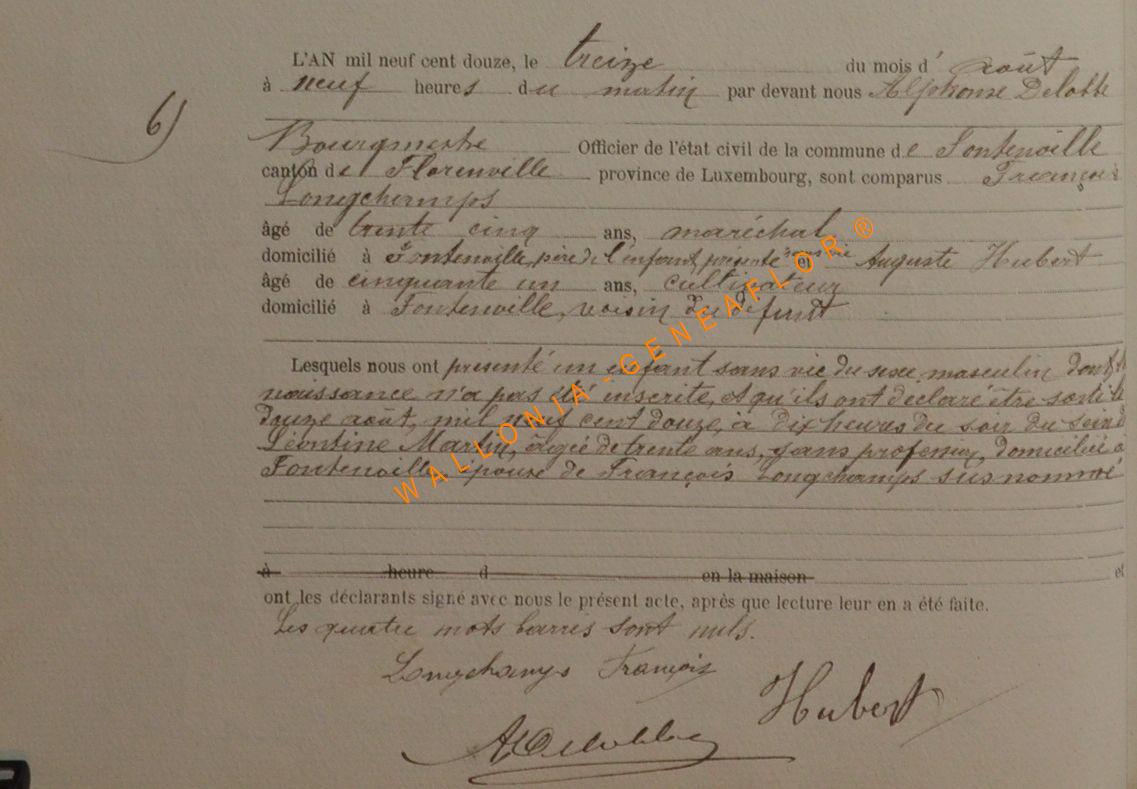 L'AN mil neuf cent douze, le treize du mois d' août
à neuf heures du matin par devant nous Alphonse Delobbe
6)
Bourgmestre Officier de l'état civil de la commune de Fontenoille
canton de Florenville province de Luxembourg, sont comparus François
Longchamps
âgé de trente cinq ans, maréchal
domicilié à Fontenoille, père de l'enfant présenté et Auguste Hubert
âgé de cinquante un ans, cultivateur
domicilié à Fontenoille, voisin du défunt
Lesquels nous ont présenté un enfant sans vie du sexe masculin dont
naissance n'a pas été inscrite, et qu'ils ont déclaré être sorti le
douze août, mil neuf cent douze, à dix heures du soir du sein d
Léontine Martin, âgée de trente ans, sans profession, domiciliée à
Fontenoille épouse de François Longchamps susnommé
à heure d en la maison et
ont les déclarants signé avec nous le présent acte, après que lecture leur en a été faite.
Les quatre mots barrés sont nuls.
Longchamps François
Hubert
ADelobbe
WALLONIA-GENEAFLOR®